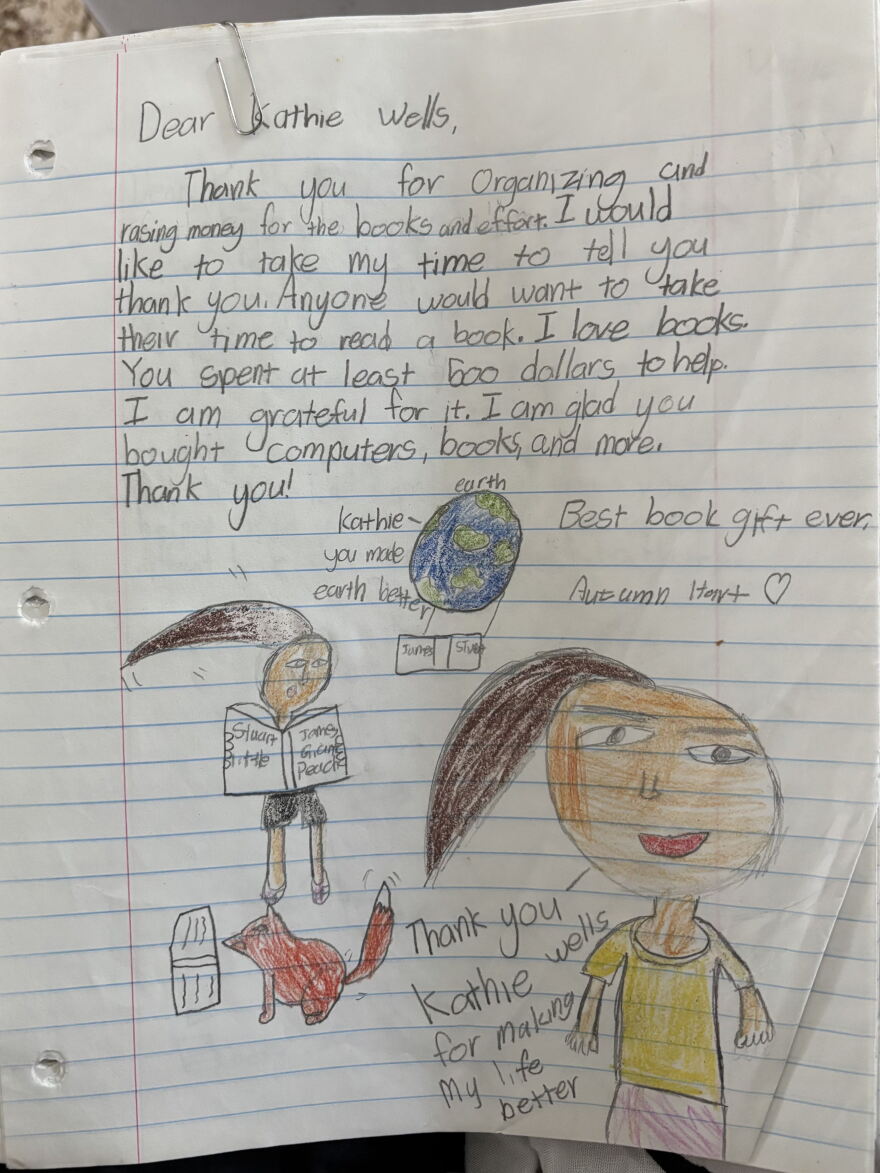 Dear Kathie Wells,
Thank you for Organizing and
rasing money for the books and effort. I would
like to take my time to tell you
thank you. Anyone would want to take
their time to read a book. I love books.
You spent at least 500 dollars to help.
I am grateful for it. I am glad you
bought computers, books, and more.
Thank you!
earth
Kathie
you made
earth better
Best book gift ever.
Autumn Hart ♡
James
Stuart
Little
James
Giant
Peach
Thank you
Kathie wells
for making
my life
better